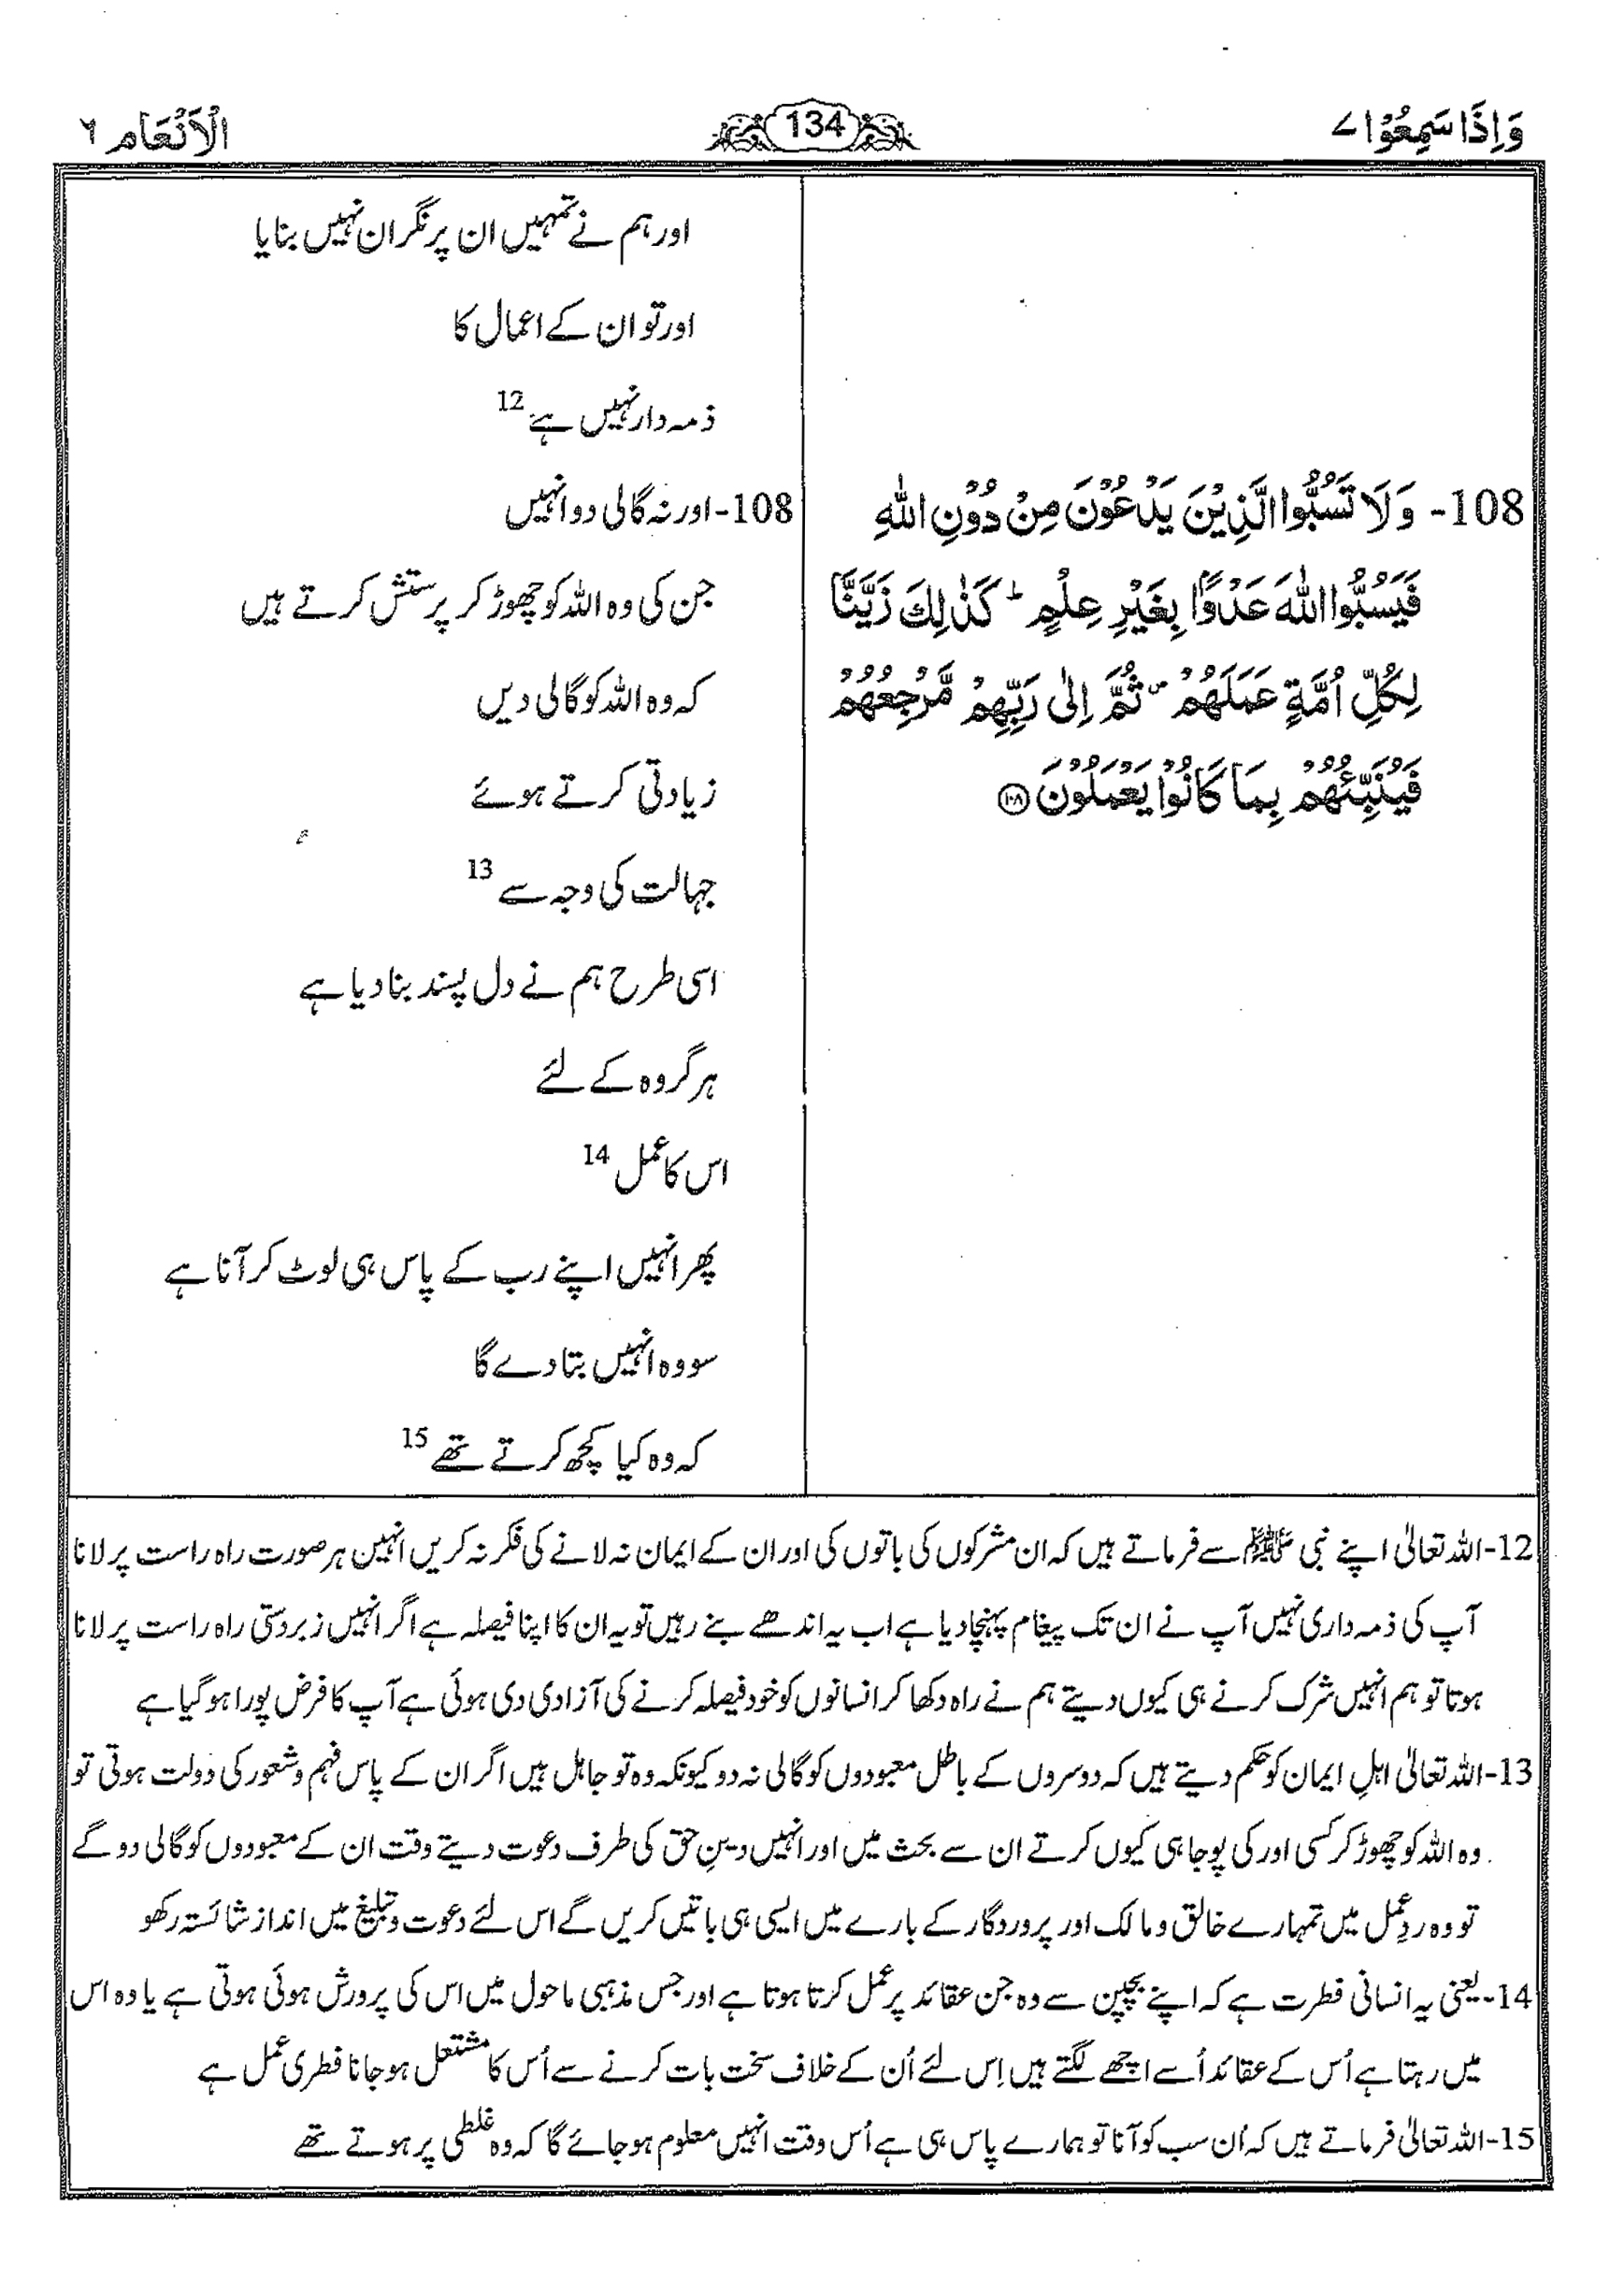 وَاِذَا سَمِعُوْا ۷
134
الْاَنْعَام ۶
اور ہم نے تمہیں ان پر نگران نہیں بنایا
اور تو ان کے اعمال کا
ذمہ دار نہیں ہے 12
108- وَلَا تَسُبُّوا الَّذِيْنَ يَدْعُوْنَ مِنْ دُوْنِ اللّٰهِ
فَيَسُبُّوا اللّٰهَ عَدْوًۢا بِغَيْرِ عِلْمٍ ؕ كَذٰلِكَ زَيَّنَّا
لِكُلِّ اُمَّةٍ عَمَلَهُمْ ۪ ثُمَّ اِلٰى رَبِّهِمْ مَّرْجِعُهُمْ
فَيُنَبِّئُهُمْ بِمَا كَانُوْا يَعْمَلُوْنَ ۱۰۸
108- اور نہ گالی دو انہیں
جن کی وہ اللہ کو چھوڑ کر پرستش کرتے ہیں
کہ وہ اللہ کو گالی دیں
زیادتی کرتے ہوئے
جہالت کی وجہ سے 13
اسی طرح ہم نے دل پسند بنا دیا ہے
ہر گروہ کے لئے
اس کا عمل 14
پھر انہیں اپنے رب کے پاس ہی لوٹ کر آنا ہے
سو وہ انہیں بتا دے گا
کہ وہ کیا کچھ کرتے تھے 15
12- اللہ تعالیٰ اپنے نبی ﷺ سے فرماتے ہیں کہ ان مشرکوں کی باتوں کی اور ان کے ایمان نہ لانے کی فکر نہ کریں انہین ہر صورت راہ راست پر لانا
آپ کی ذمہ داری نہیں آپ نے ان تک پیغام پہنچا دیا ہے اب یہ اندھے بنے رہیں تو یہ ان کا اپنا فیصلہ ہے اگر انہیں زبردستی راہ راست پر لانا
ہوتا تو ہم انہیں شرک کرنے ہی کیوں دیتے ہم نے راہ دکھا کر انسانوں کو خود فیصلہ کرنے کی آزادی دی ہوئی ہے آپ کا فرض پورا ہو گیا ہے
13- اللہ تعالیٰ اہلِ ایمان کو حکم دیتے ہیں کہ دوسروں کے باطل معبودوں کو گالی نہ دو کیونکہ وہ تو جاہل ہیں اگر ان کے پاس فہم و شعور کی دولت ہوتی تو
وہ اللہ کو چھوڑ کر کسی اور کی پوجا ہی کیوں کرتے ان سے بحث میں اور انہیں دینِ حق کی طرف دعوت دیتے وقت ان کے معبودوں کو گالی دو گے
تو وہ ردِعمل میں تمہارے خالق و مالک اور پروردگار کے بارے میں ایسی ہی باتیں کریں گے اس لئے دعوت و تبلیغ میں انداز شائستہ رکھو
14- یعنی یہ انسانی فطرت ہے کہ اپنے بچپن سے وہ جن عقائد پر عمل کرتا ہوتا ہے اور جس مذہبی ماحول میں اس کی پرورش ہوئی ہوتی ہے یا وہ اس
میں رہتا ہے اُس کے عقائد اُسے اچھے لگتے ہیں اِس لئے اُن کے خلاف سخت بات کرنے سے اُس کا مشتعل ہو جانا فطری عمل ہے
15- اللہ تعالیٰ فرماتے ہیں کہ اُن سب کو آنا تو ہمارے پاس ہی ہے اُس وقت انہیں معلوم ہو جائے گا کہ وہ غلطی پر ہوتے تھے